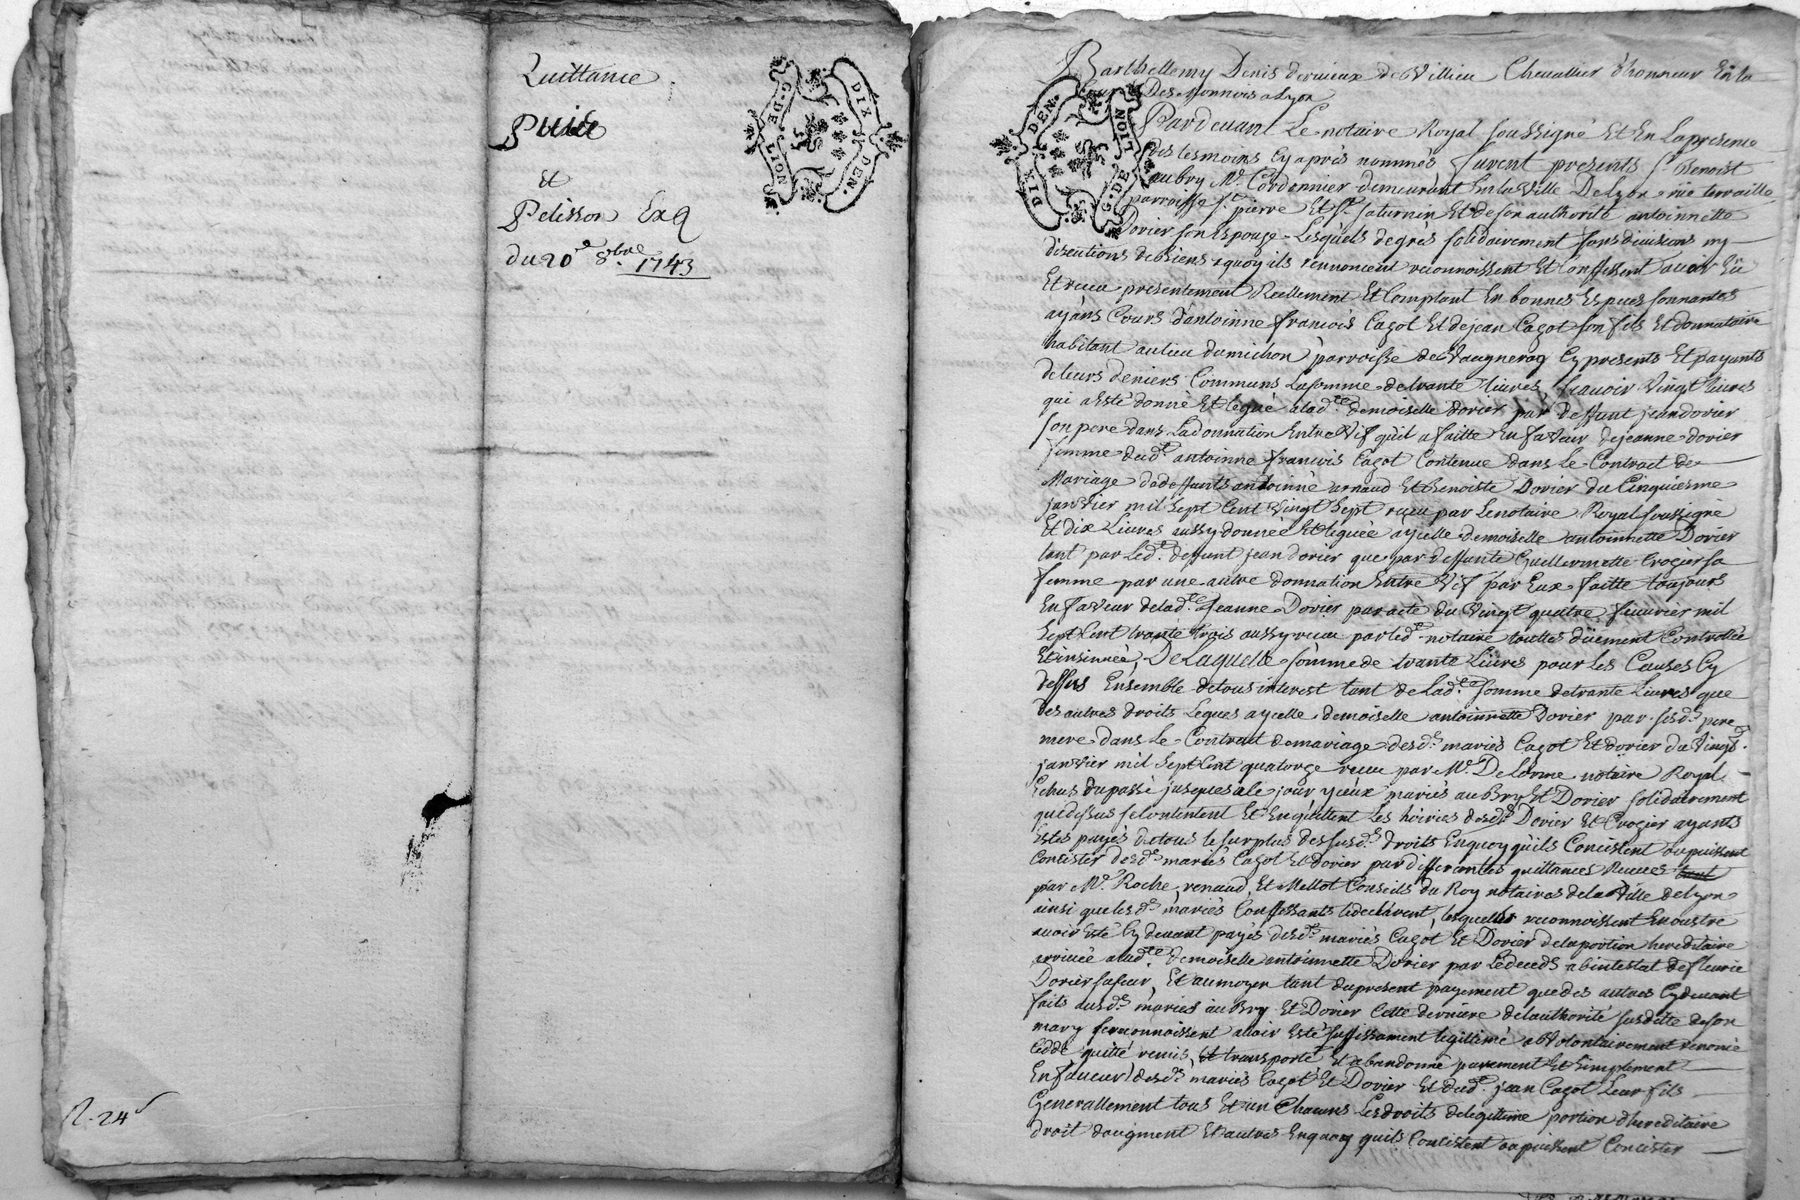 Quittance
Puite
et
Pelisson Exq
du 20e 8bre 1743
G. DE LION
DIX DEN.
R. 24s
Barthellemy Denis dervieux de Villieu Chevallier d'honneur En la
Des Monnois a Lyon
DIX DEN.
G. DE LION
Pardevant Le notaire Royal soussigné Et En La presence
Des tesmoins Cy après nommés furent presents Sr. Benoist
aubry Me. Cordonnier demeurant En la Ville De Lyon rüe terraille
parroisse St. pierre Et St. saturnin Et de son authorité antoinnette
Dorier son Espouze Lesquels de grés solidairement sans divisions ny
discutions de biens a quoy ils rennoncent reconnoissent Et Confessent avoir Eü
Et receu presentement Reellement Et Comptant En bonnes Especes sonnantes
ayans Cours d'antoinne francois Cagot Et de jean Cagot son fils Et donnataire
habitant au lieu du michon parroisse de Vaugneray Cy presents Et payants
de leurs deniers Communs La somme de trante livres scavoir Vingt livres
qui a Esté donné Et legué a lad.te demoiselle dorier par deffunt jean dorier
son pere dans La donnation Entre Vif qu'il a faitte En faveur de jeanne dorier
femme dud.t antoinne francois Cagot Contenue dans Le Contract de
Mariage de deffunts antoinne arnaud Et Benoiste Dorier du Cinquiesme
janvier mil sept Cent Vingt sept receu par Le notaire Royal soussigné
Et dix Livres aussy donnée Et leguée a ycelle demoiselle antoinnette Dorier
tant par Led.t deffunt jean dorier que par deffunte Guillermette Crozier sa
femme par une autre donnation Entre Vif par Eux faitte toujours
En faveur de lad.te jeanne Dorier par acte du Vingt quatre feuvrier mil
sept Cent trante trois aussy receu par led.t notaire touttes düement Controllée
Et insinuée, De Laquelle somme de trante Livres pour Les Causes Cy
dessus Ensemble de tous interest tant de Lad.te somme de trante Livres que
des autres droits Legués a ycelle demoiselle antoinnette Dorier par sesd.s pere
mere dans Le Contract de mariage desd.s mariés Cagot Et dorier du Vingt
janvier mil sept Cent quatorze receu par Me. Delorme notaire Royal
Echus du passé jusques a Ce jour yceux mariés aubry Et Dorier solidairement
que dessus se Contentent Et En quittent Les hoiries desd.s Dorier Et Crozier ayants
Estés payés de tous le surplus des susd.s droits En quoy qu'ils Concistent ou puissent
Concister desd.s mariés Cagot Et dorier par differantes quittances Receues
par Mes. Roche, renaud, Et Mellot Conseils du Roy notaires de la Ville de Lyon
ainsi que lesd.s mariés Confessants le declarent, lesquelles reconnoissent En oustre
avoir Esté Cy devant payés desd.s mariés Cagot Et Dorier de la portion hereditaire
arrivée a lad.te demoiselle antoinnette Dorier par Le deceds abintestat de fleurie
Dorier sa seur, Et au moyen tant du present payement que des autres Cy devant
faits ausd.s mariés aubry Et Dorier Cette derniere de l'authorité susditte de son
mary se reconnoissent avoir Esté suffissament legittimé a Volontairement renoncé
Cedde quitté remis, Et transporté Et abandonné purement Et simplement
En faveur desd.s mariés Cagot Et Dorier Et dud.t jean Cagot Leur fils
Generallement tous Et un Chacuns Les droits de legittime portion d'hereditaire
droit d'augment Et autres En quoy qu'ils Concistent ou puissent Concister